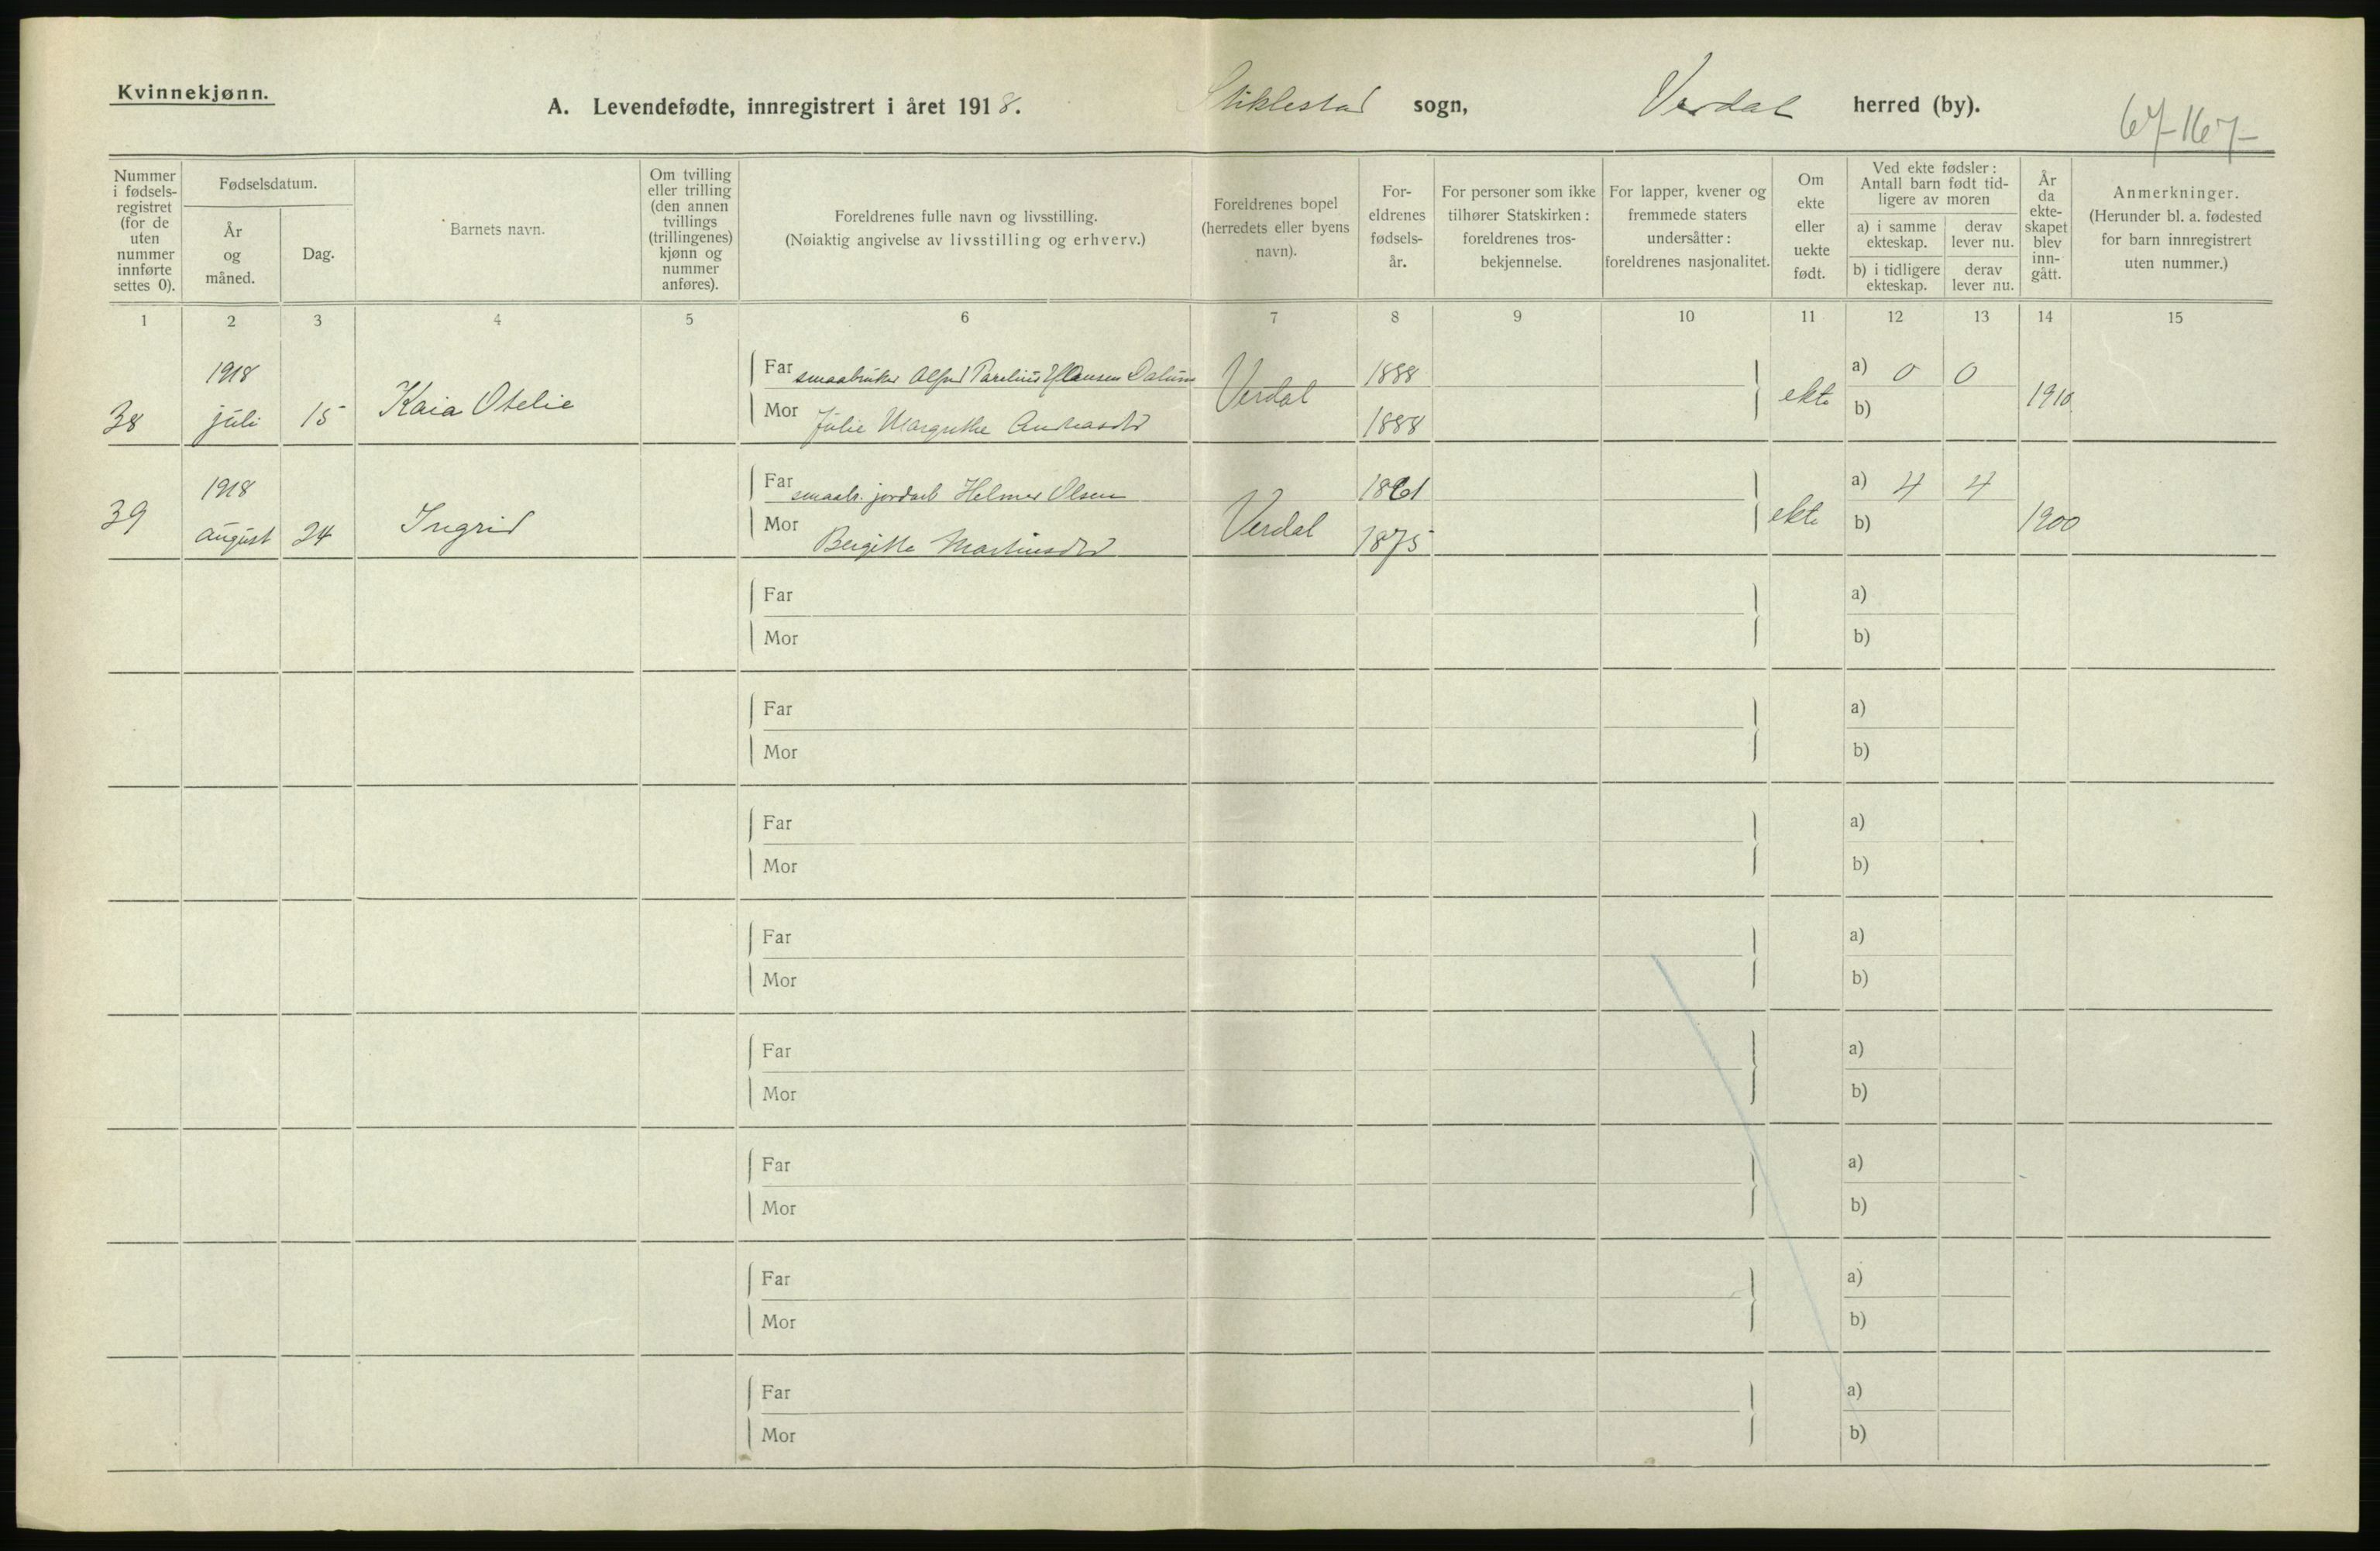 Kvinnekjønn.
A. Levendefødte, innregistrert i året 1918. Stiklestad sogn, Verdal herred (by).
67-167-
Nummer i fødselsregistret (for de uten nummer innførte settes 0).
Fødselsdatum.
År og måned.
Dag.
Barnets navn.
Om tvilling eller trilling (den annen tvillings (trillingenes) kjønn og nummer anføres).
Foreldrenes fulle navn og livsstilling.
(Nøiaktig angivelse av livsstilling og erhverv.)
Foreldrenes bopel (herredets eller byens navn).
Foreldrenes fødselsår.
For personer som ikke tilhører Statskirken: foreldrenes trosbekjennelse.
For lapper, kvener og fremmede staters undersåtter: foreldrenes nasjonalitet.
Om ekte eller uekte født.
Ved ekte fødsler: Antall barn født tidligere av moren
a) i samme ekteskap.
derav lever nu.
b) i tidligere ekteskap.
derav lever nu.
År da ekteskapet blev inngått.
Anmerkninger.
(Herunder bl. a. fødested for barn innregistrert uten nummer.)
1 2 3 4 5 6 7 8 9 10 11 12 13 14 15
38 1918 juli 15 Kaia Otelie
Far smaabruker Alfred Parelius Hansen Dalum Verdal 1888 ekte a) 0 0 1910
Mor Julie Margrethe Andreasdtr 1888 b)
39 1918 august 24 Ingrid
Far smaabr. jordarb Helmer Olsen Verdal 1861 ekte a) 4 4 1900
Mor Bergitte Martinusdtr 1875 b)
Far a)
Mor b)
Far a)
Mor b)
Far a)
Mor b)
Far a)
Mor b)
Far a)
Mor b)
Far a)
Mor b)
Far a)
Mor b)
Far a)
Mor b)